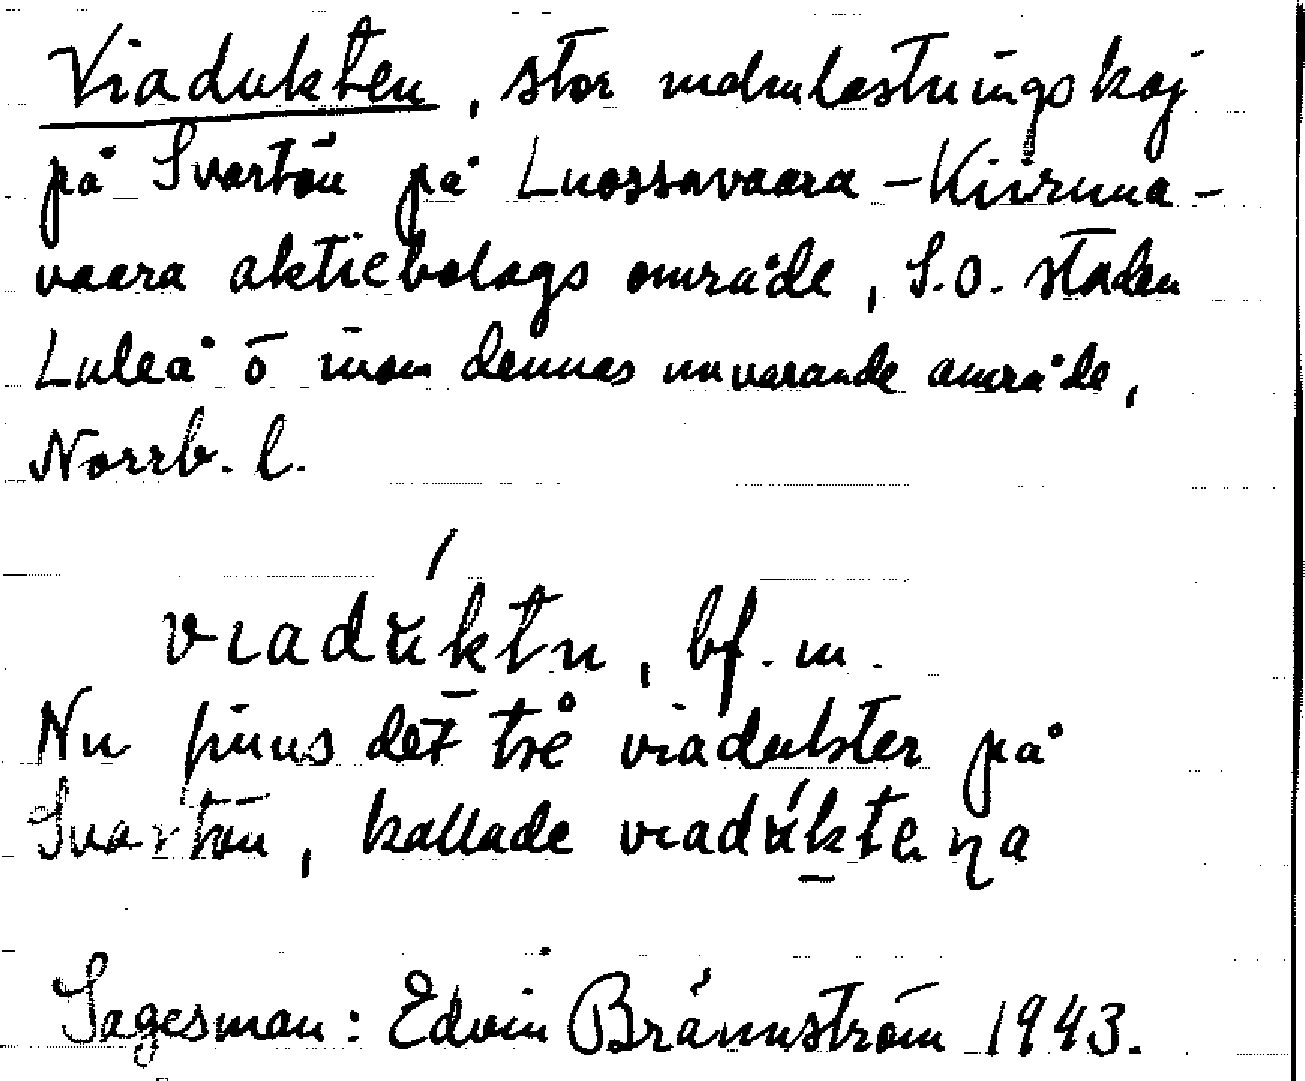 Viadukten, stor malmlastningskaj
på Svartön på Luossavaara-Kiiruna-
vaara aktiebolags område, S.O. staden
Luleå o inom dennas nuvarande område,
Norrb. l.
viadúktn, bf. m.
Nu finns det två viadukter på
Svartön, kallade viadúktena
Sagesman: Edvin Brännström 1943.